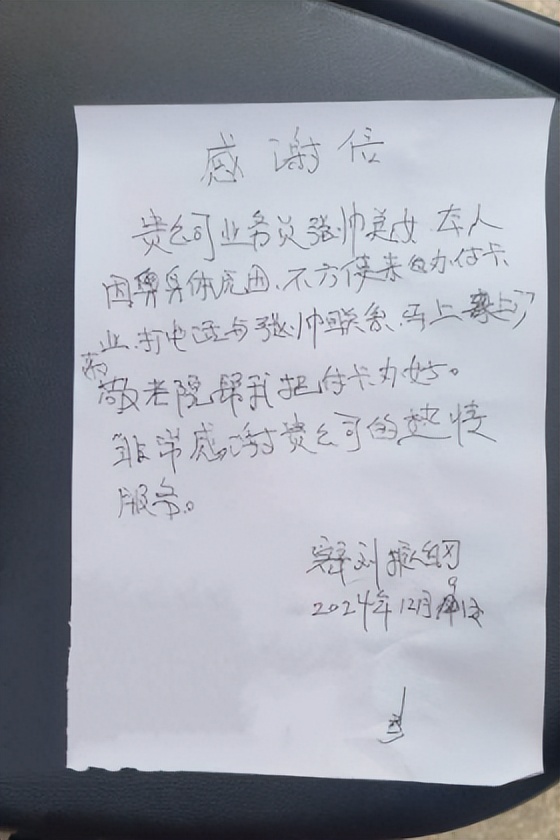 感谢信
贵公司业务员张帅美女 本人
因身体原因、不方便来办付卡
业、打电话与张帅联系、马上上门
来敬老院帮我把付卡办好。
非常感谢贵公司的热情
服务。
刘振纲
2024年12月9